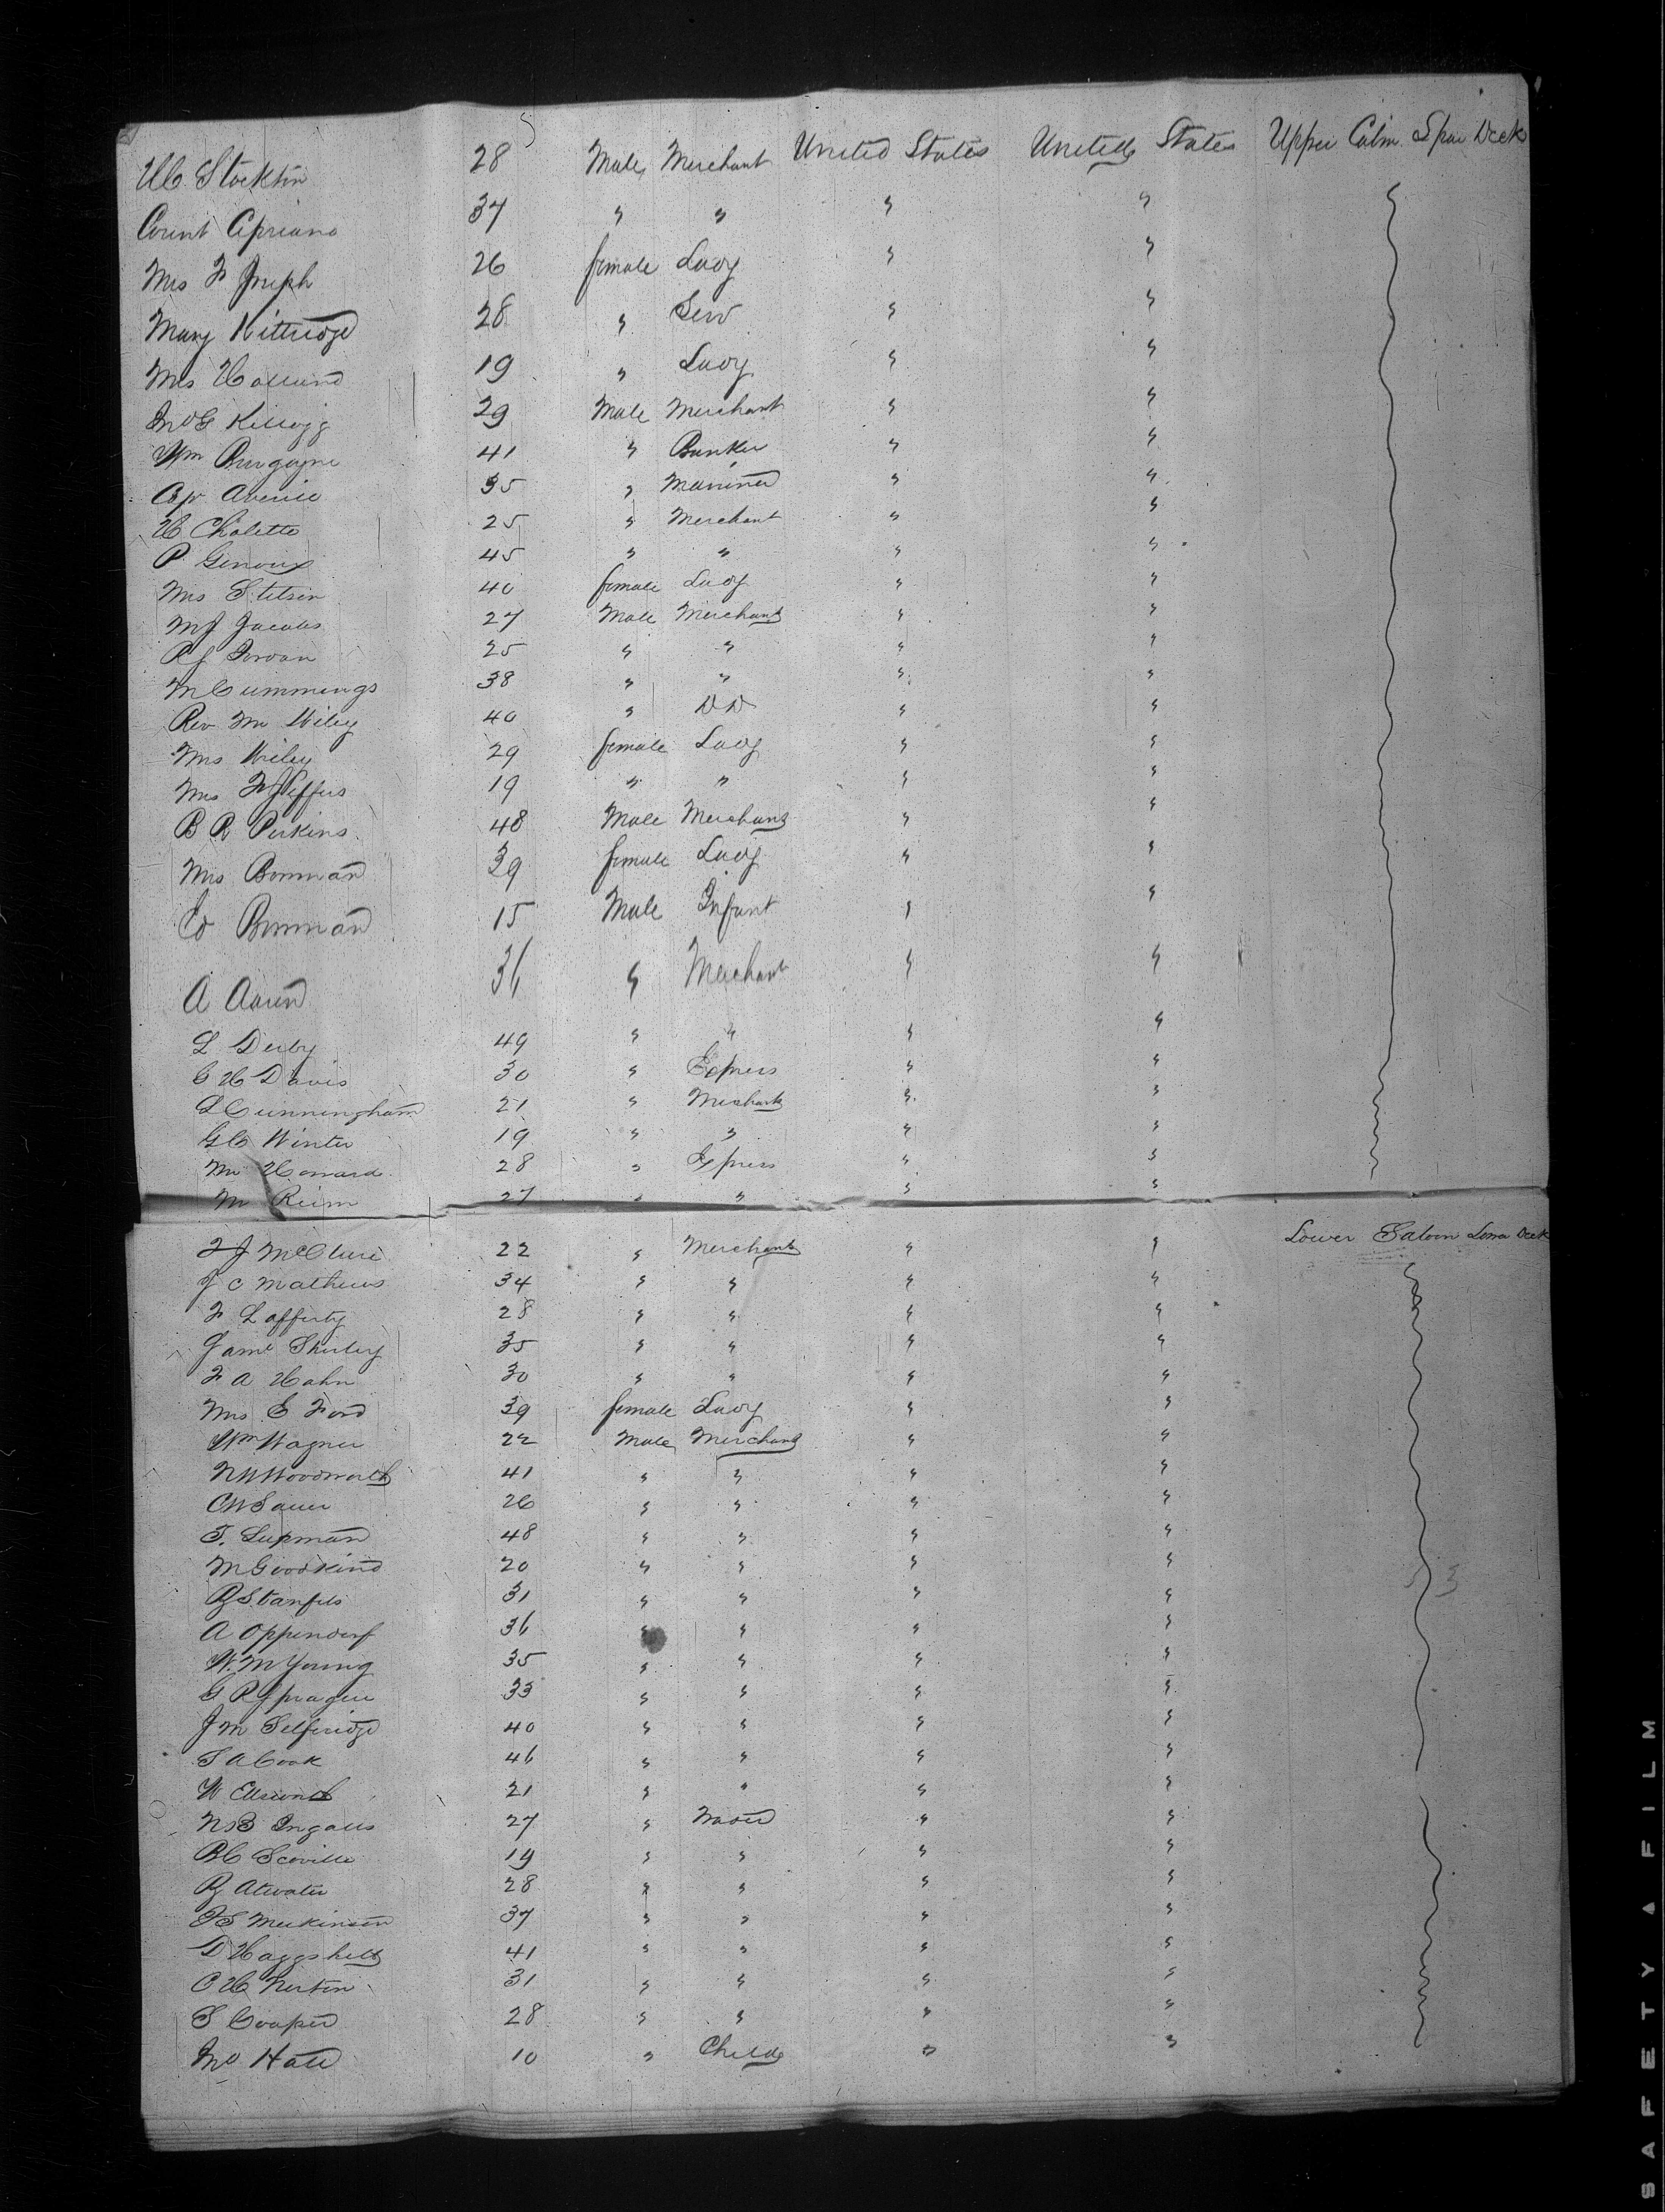 H C Stockton 28 Male Merchant United States United States Upper Cabin Spar Deck
Count Cipriano 37 " " " "
Mrs F Joseph 26 female Lady " "
Mary Kittredge 28 " Serv " "
Mrs Holland 19 " Lady " "
Jno G Kellogg 29 Male Merchant " "
Wm Burgoyne 41 " Banker " "
Cap 35 " Mariner " "
H Cholette 25 " Merchant " "
P Genoux 45 " " " "
Mrs Stetson 40 female Lady " "
M J Jacobs 27 Male Merchant " "
R J 25 " " " "
M Cummings 38 " " " "
Rev Mr Wiley 40 " D D " "
Mrs Wiley 29 female Lady " "
Mrs 19 " " " "
B R Perkins 48 Male Merchant " "
Mrs Bowman 39 female Lady " "
Ed Bowman 15 Male Infant " "
A 36 " Merchant " "
L Derby 49 " " " "
C H Davis 30 " Express " "
L Cunningham 21 " Merchant " "
G C Winter 19 " " " "
Mr Howard 28 " Express " "
Mr 27 " " " "
T J McClure 22 " Merchant " " Lower Saloon Lower Deck
J C Mathews 34 " " " "
F Lafferty 28 " " " "
Jame Shirley 35 " " " "
F A Hahn 30 " " " "
Mrs E Ford 39 female Lady " "
Wm Wagner 22 Male Merchant " "
N W Woodworth 41 " " " "
C W Sauer 26 " " " "
T. Lupman 48 " " " "
M Goodkind 20 " " " "
31 " " " "
A Oppendorf 36 " " " "
W. M Young 35 " " " "
G R Sprague 33 " " " "
J M Selfridge 40 " " " "
S A Cook 46 " " " "
W Ellsworth 21 " " " "
N B Ingalls 27 " " "
B C Scoville 19 " " " "
R Atwater 28 " " " "
37 " " " "
D 41 " " " "
C H Norton 31 " " " "
S Cooper 28 " " " "
Jno Hall 10 " Child " "
SAFETY FILM